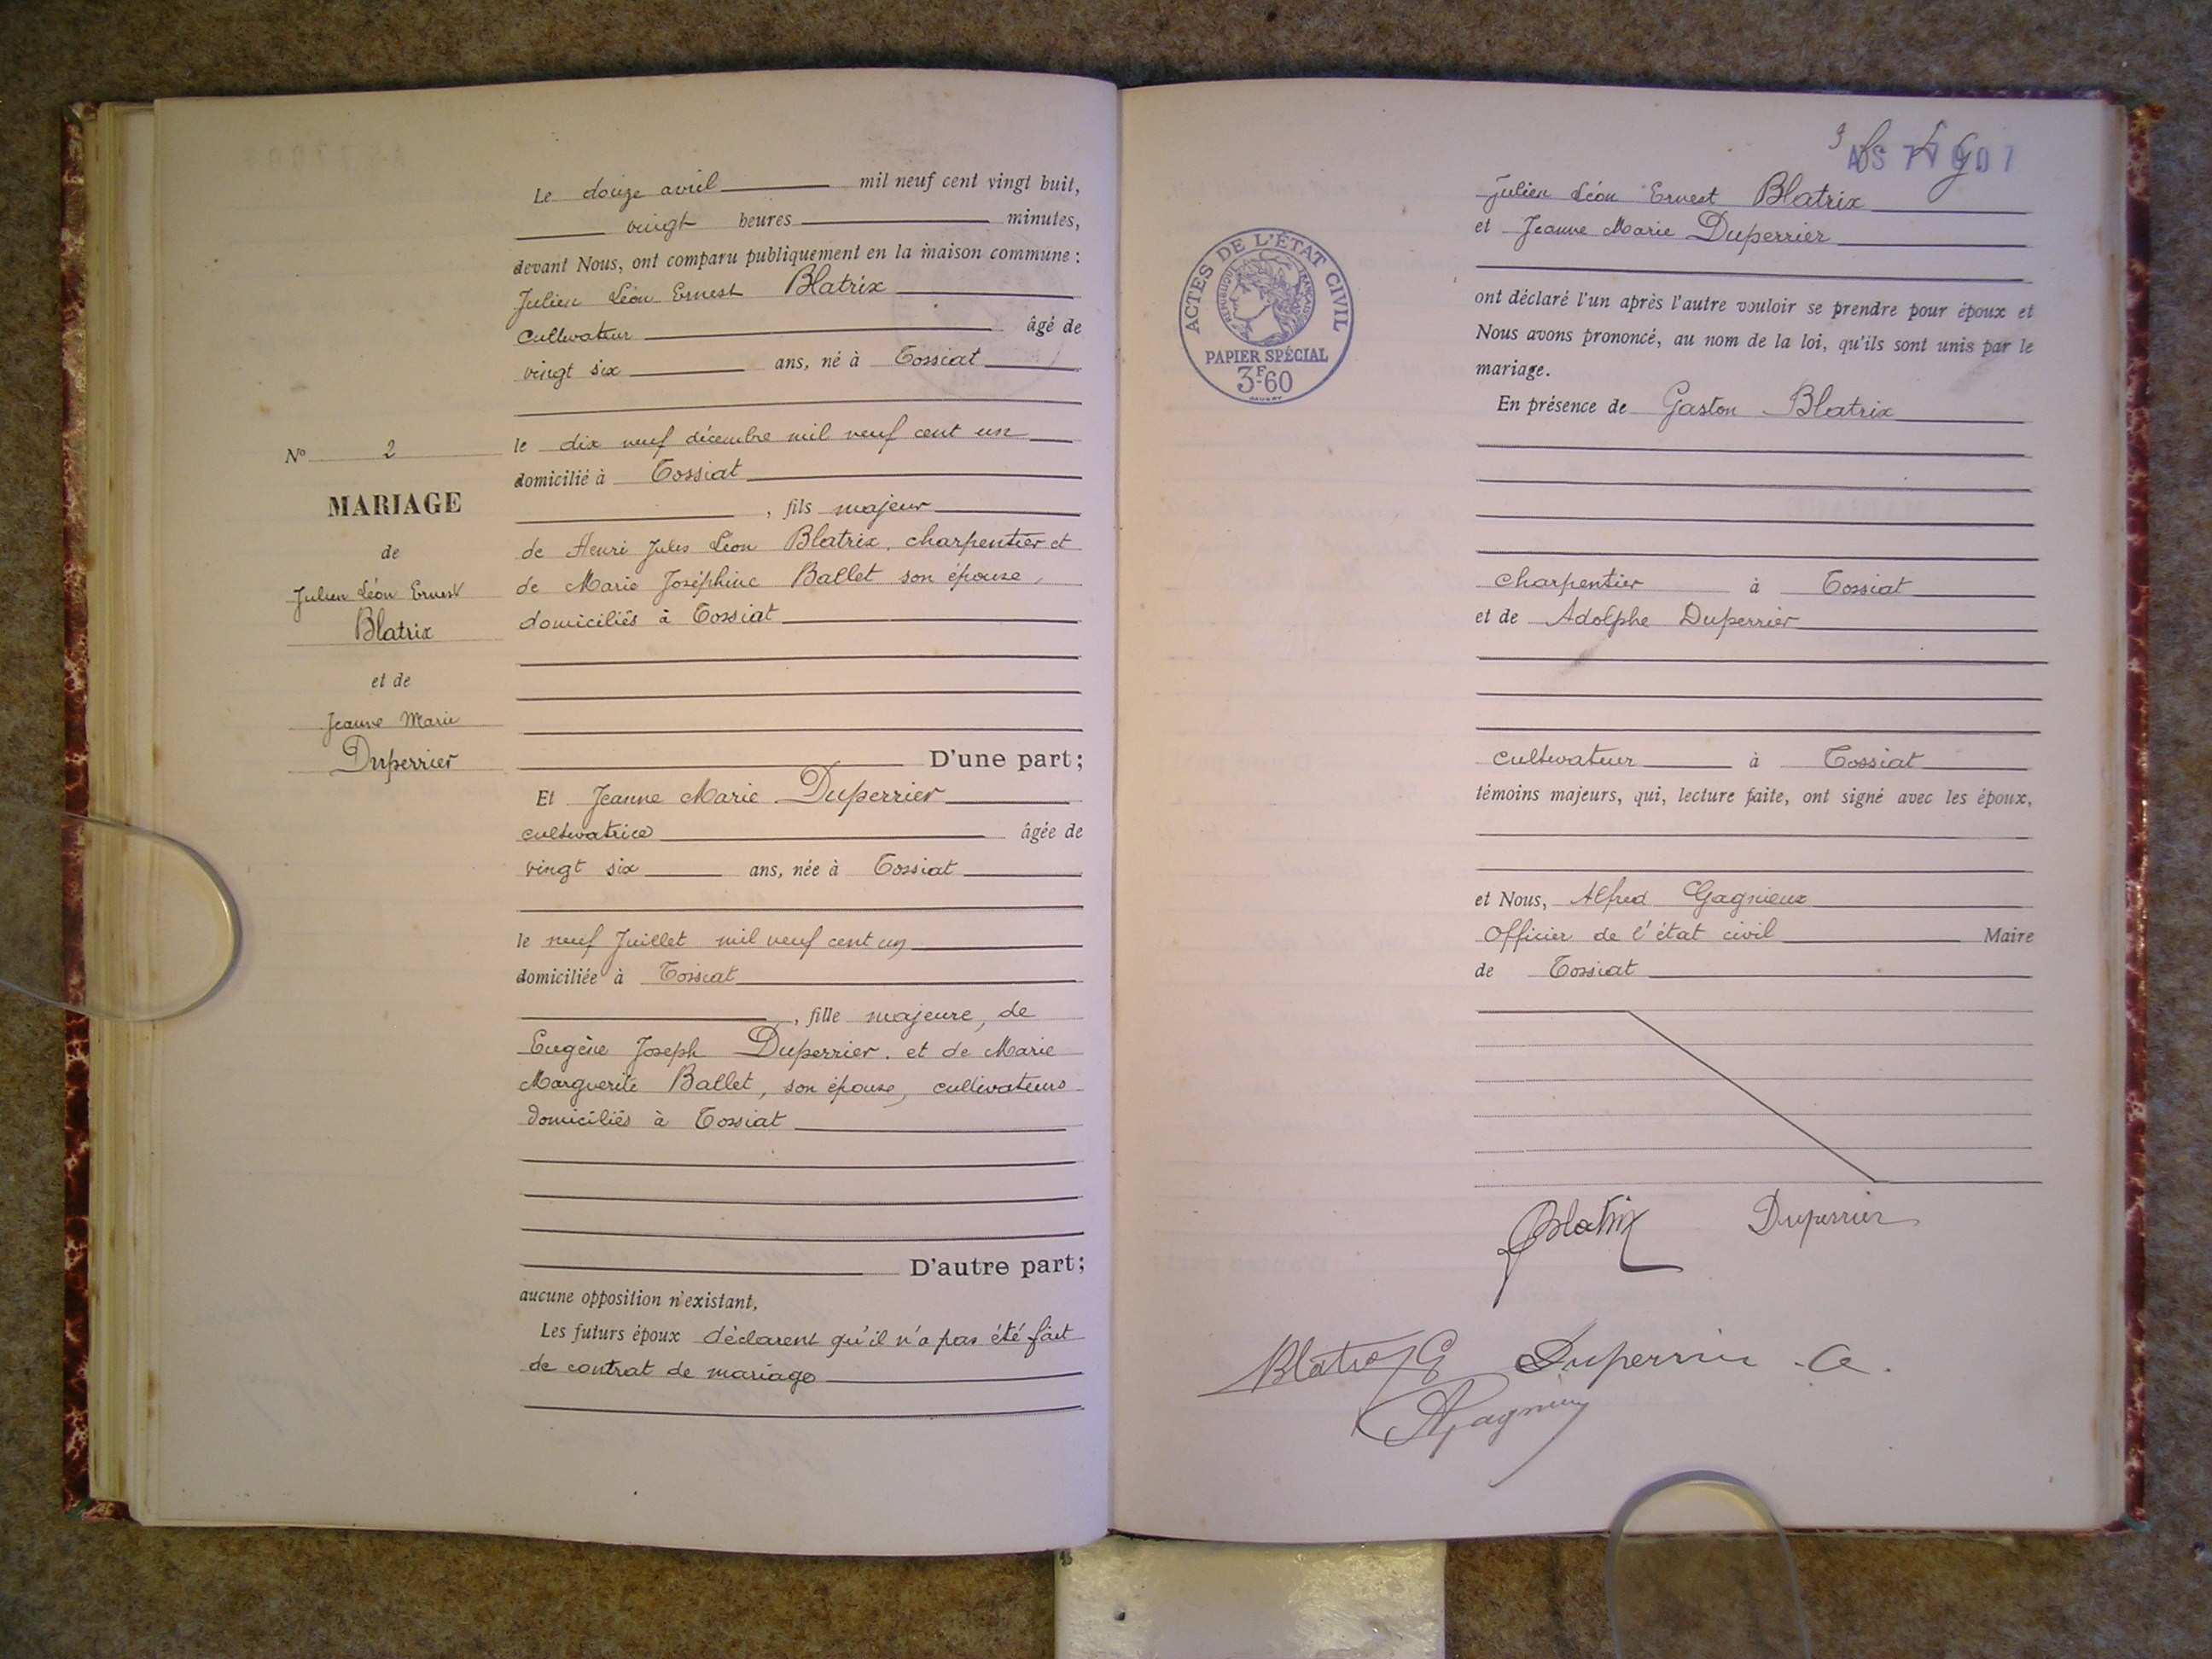 Le douze avril mil neuf cent vingt huit,
vingt heures minutes,
devant Nous, ont comparu publiquement en la maison commune :
Julien Léon Ernest Blatrix
cultivateur âgé de
vingt six ans, né à Tossiat
le dix neuf décembre mil neuf cent un
domicilié à Tossiat
, fils majeur
de Henri Jules Léon Blatrix, charpentier et
de Marie Joséphine Ballet son épouse,
domiciliés à Tossiat
D'une part;
Et Jeanne Marie Duperrier
cultivatrice âgée de
vingt six ans, née à Tossiat
le neuf Juillet mil neuf cent un
domiciliée à Tossiat
, fille majeure, de
Eugène Joseph Duperrier. et de Marie
Marguerite Ballet, son épouse, cultivateurs
domiciliés à Tossiat
D'autre part;
aucune opposition n'existant,
Les futurs époux déclarent qu'il n'a pas été fait
de contrat de mariage
No 2
MARIAGE
de
Julien Léon Ernest
Blatrix
et de
Jeanne Marie
Duperrier
ACTES DE L'ÉTAT CIVIL
REPUBLIQUE FRANÇAISE
PAPIER SPÉCIAL
3F60
Julien Léon Ernest Blatrix
et Jeanne Marie Duperrier
ont déclaré l'un après l'autre vouloir se prendre pour époux et
Nous avons prononcé, au nom de la loi, qu'ils sont unis par le
mariage.
En présence de Gaston Blatrix
charpentier à Tossiat
et de Adolphe Duperrier
cultivateur à Tossiat
témoins majeurs, qui, lecture faite, ont signé avec les époux,
et Nous, Alfred Gagnieux
Officier de l'état civil Maire
de Tossiat
Blatrix Duperrier
Blatrix G Duperrier . A .
AGagnieux